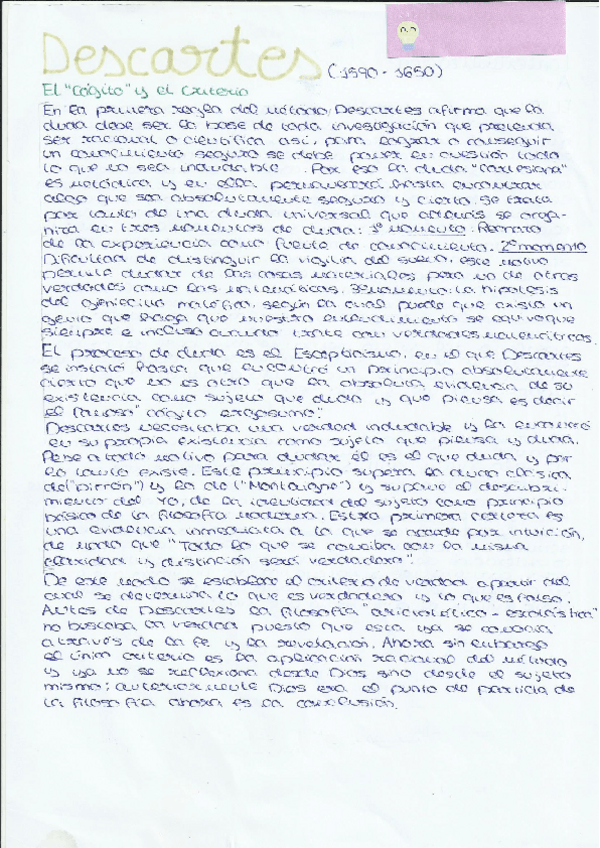 Descartes (1590-1650)
El "Cógito" y el criterio
En la primera regla del método, Descartes afirma que la
duda debe ser la base de toda investigación que pretenda
ser racional o científica así, para lograr o conseguir
un conocimiento seguro se debe poner en cuestión todo
lo que no sea indudable. Por eso la duda "cartesiana"
es metódica y en ella permanecerá hasta encontrar
algo que sea absolutamente seguro y cierto. Se trata
por tanto de una duda universal que además se orga-
niza en tres momentos de duda: 1º momento:
de la experiencia como fuente de conocimiento. 2º momento
Dificultad de distinguir la vigilia del sueño, este motivo
permite dudar de las cosas materiales pero no de otras
verdades como las matemáticas. 3º momento: la hipótesis
del geniecillo maléfico, según la cual puede que exista un
genio que haga que nuestro entendimiento se equivoque
siempre e incluso cuando trate con verdades matemáticas.
El proceso de duda es el Escepticismo, en el que Descartes
se instaló hasta que encontró un principio absolutamente
cierto que no es otro que la absoluta evidencia de su
existencia como sujeto que duda y que piensa es decir
el famoso "cógito ergosumo".
Descartes necesitaba una verdad indudable y la encontró
en su propia existencia como sujeto que piensa y duda.
Pese a todo motivo para dudar él es el que duda y por
lo tanto existe. Este principio supera la duda clásica
del ("pirrón") y la de ("Montaigne") y supone el descubri-
miento del yo, de la identidad del sujeto como principio
básico de la filosofía moderna. Esta primera certeza es
una evidencia inmediata a la que se accede por intuición,
de modo que "Todo lo que se conciba con la misma
claridad y distinción será verdadero".
De este modo se establece el criterio de verdad a partir del
cual se determina lo que es verdadero y lo que es falso.
Antes de Descartes la filosofía "aristotélico-escolástica"
no buscaba la verdad puesto que esta ya se conocía
a través de la fe y la revelación. Ahora sin embargo
el único criterio es la aplicación racional del método
y ya no se reflexiona desde Dios sino desde el sujeto
mismo; anteriormente Dios era el punto de partida de
la filosofía ahora es la conclusión.